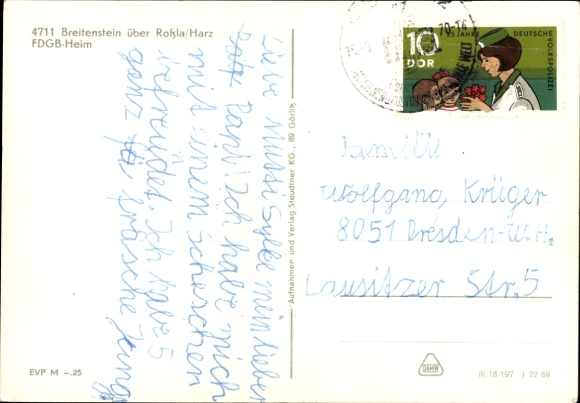 4711 Breitenstein über Roßla/Harz
FDGB-Heim
10
DDR
25 JAHRE DEUTSCHE
VOLKSPOLIZEI
70-14
Liebe Mutti Sylke mein lieber
Papi! Ich habe mich
mit einem
befreundet. Ich habe 5
ganz
Aufnahmen und Verlag Steudtner KG., 89 Görlitz
Familie
Wolfgang Krüger
8051 Dresden-W.H.
Lausitzer Str. 5
EVP M –.25
DAMW
III/18/197 | 22 69